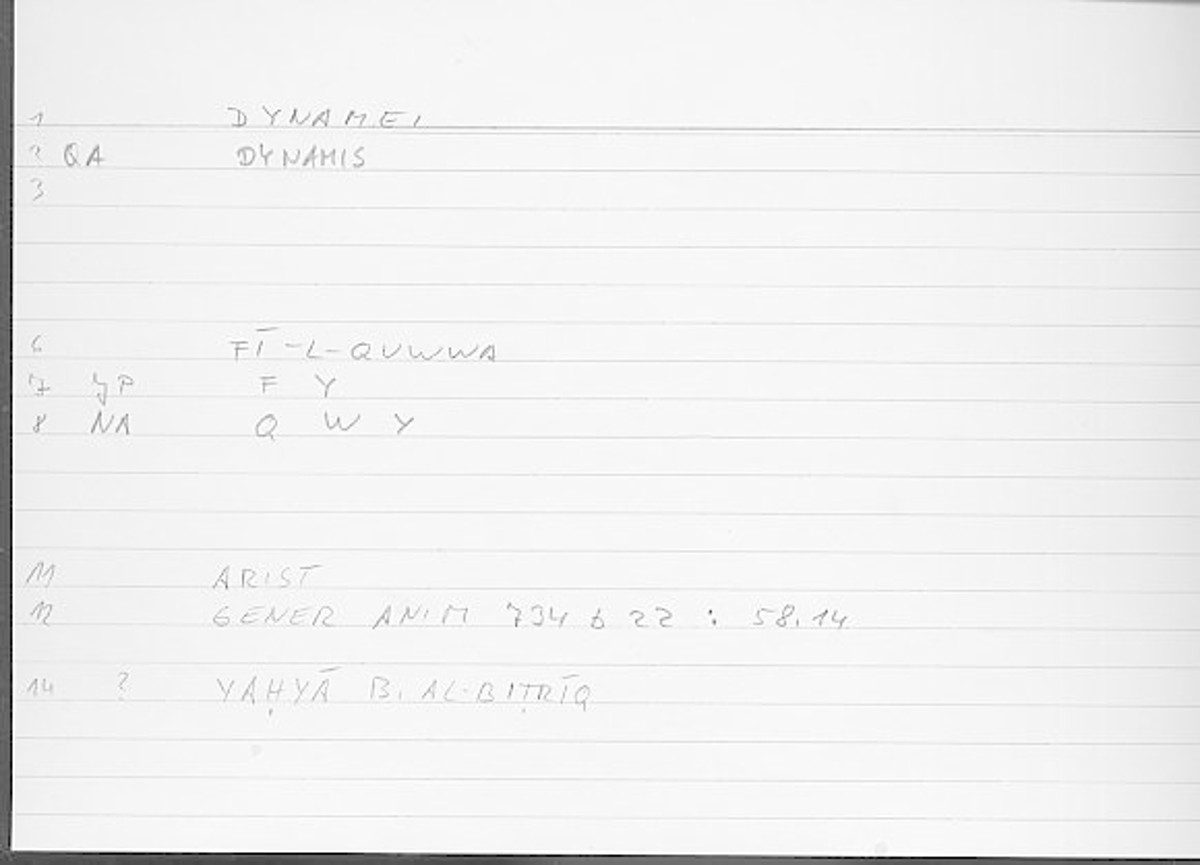 1 DYNAMEI
2 QA DYNAMIS
3
6 FĪ-L-QUWWA
7 JP F Y
8 NA Q W Y
11 ARIST
12 GENER ANIM 734 b 22 : 58.14
14 ? YAḤYĀ B. AL-BIṬRĪQ